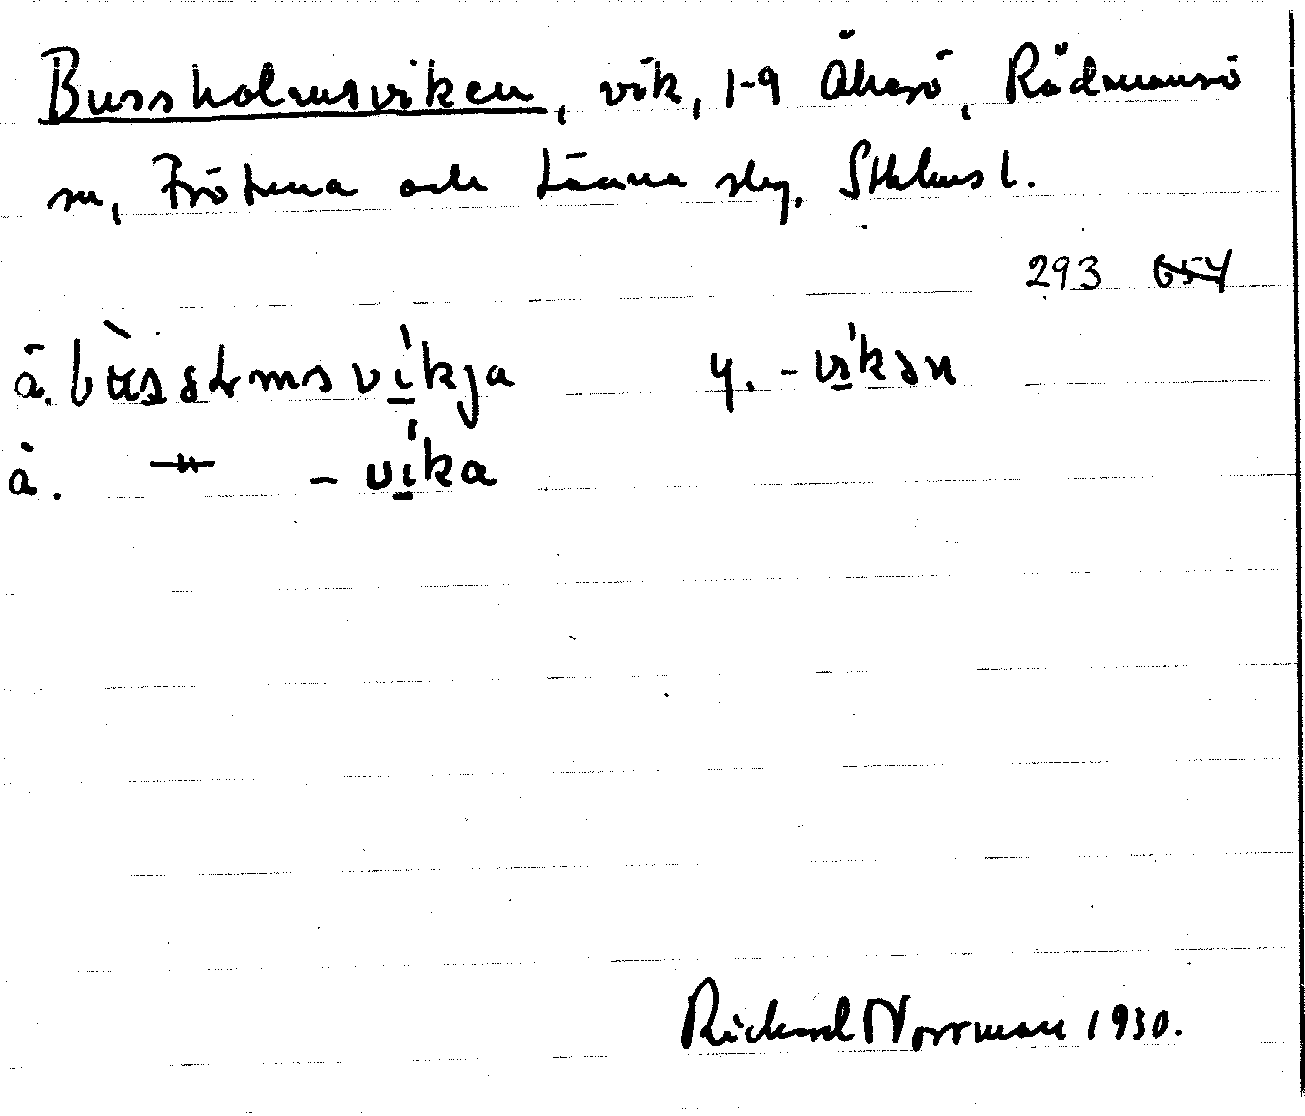 Bussholmsviken, vik, 1-9 Åkerö, Rådmansö
sn, Frötuna och Länna slg. Sthlms l.
293 654
ä. y. -vikən
ä. -〃- -vika
Rickard Norrman 1930.